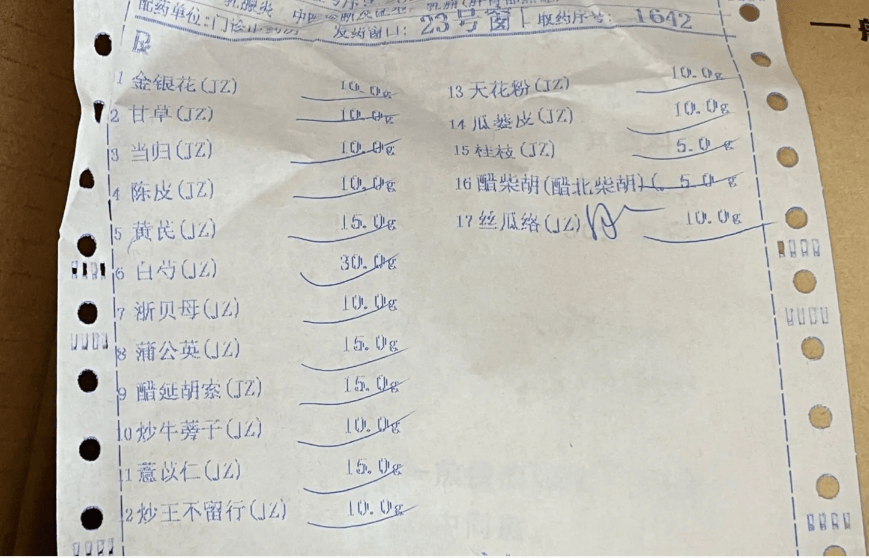 乳腺炎
配药单位:门诊中药房 发药窗口: 23号窗 取药序号: 1642
一般
R
1 金银花(JZ) 10.0g
2 甘草(JZ) 10.0g
3 当归(JZ) 10.0g
4 陈皮(JZ) 10.0g
5 黄芪(JZ) 15.0g
6 白芍(JZ) 30.0g
7 浙贝母(JZ) 10.0g
8 蒲公英(JZ) 15.0g
9 醋延胡索(JZ) 15.0g
10 炒牛蒡子(JZ) 10.0g
11 薏苡仁(JZ) 15.0g
12 炒王不留行(JZ) 10.0g
13 天花粉(JZ) 10.0g
14 瓜蒌皮(JZ) 10.0g
15 桂枝(JZ) 5.0 g
16 醋柴胡(醋北柴胡)(. 5.0 g
17 丝瓜络(JZ) 10.0g